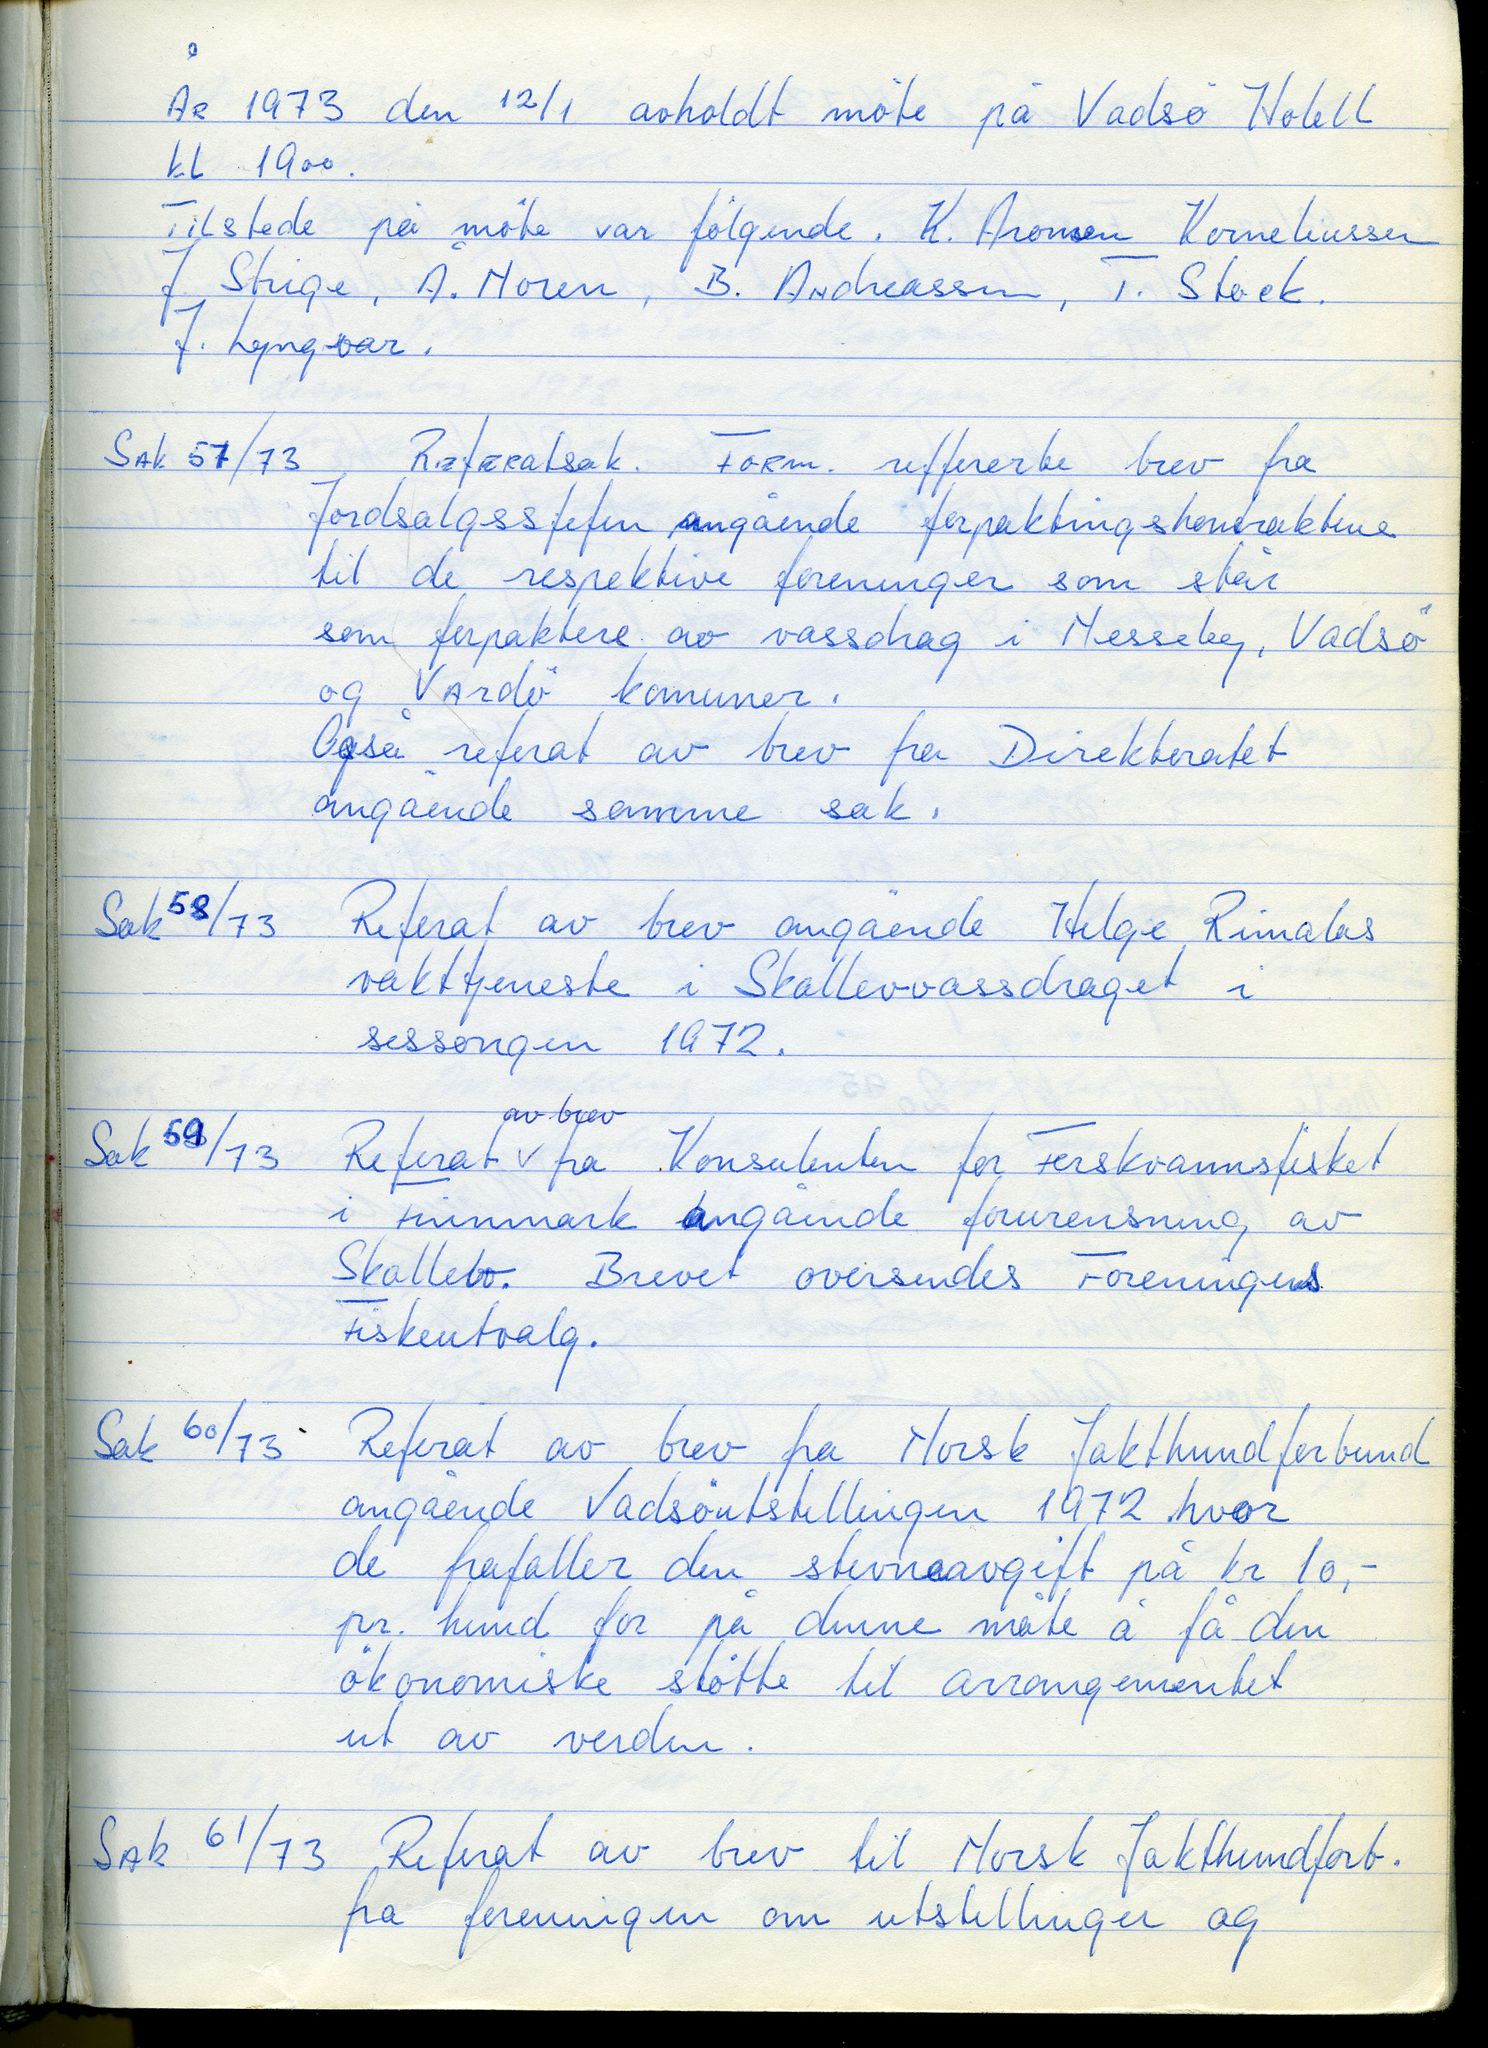 År 1973 den 12/1 avholdt möte på Vadsö Hotell
kl 19oo.
Tilstede på möte var fölgende. K. Aronsen Korneliussen
J. Strige, A. Moren, B. Andreassen, T. Stock.
J. Lyngvar.
Sak 57/73 Referatsak. Form. reffererte brev fra
Jordsalgssjefen angående forpaktingskontraktene
til de respektive foreninger som står
som forpaktere av vassdrag i Nesseby, Vadsö
og Vardö komuner.
Også referat av brev fra Direktoratet
angående samme sak.
Sak 58/73 Referat av brev angående Helge Rimalas
vakttjeneste i Skallevvassdraget i
sessongen 1972.
av brev
Sak 59/73 Referat v fra Konsulenten for Ferskvannsfisket
i Finnmark angående forurensning av
Skallelv. Brevet oversendes Foreningens
Fiskeutvalg.
Sak 60/73 Referat av brev fra Norsk Jakthundforbund
angående Vadsöutstellingen 1972 hvor
de frafaller den stevneavgift på kr 10,-
pr. hund for på denne måte å få den
ökonomiske stötte til arrangementet
ut av verden.
Sak 61/73 Referat av brev til Norsk Jakthundforb.
fra foreningen om utstellinger og